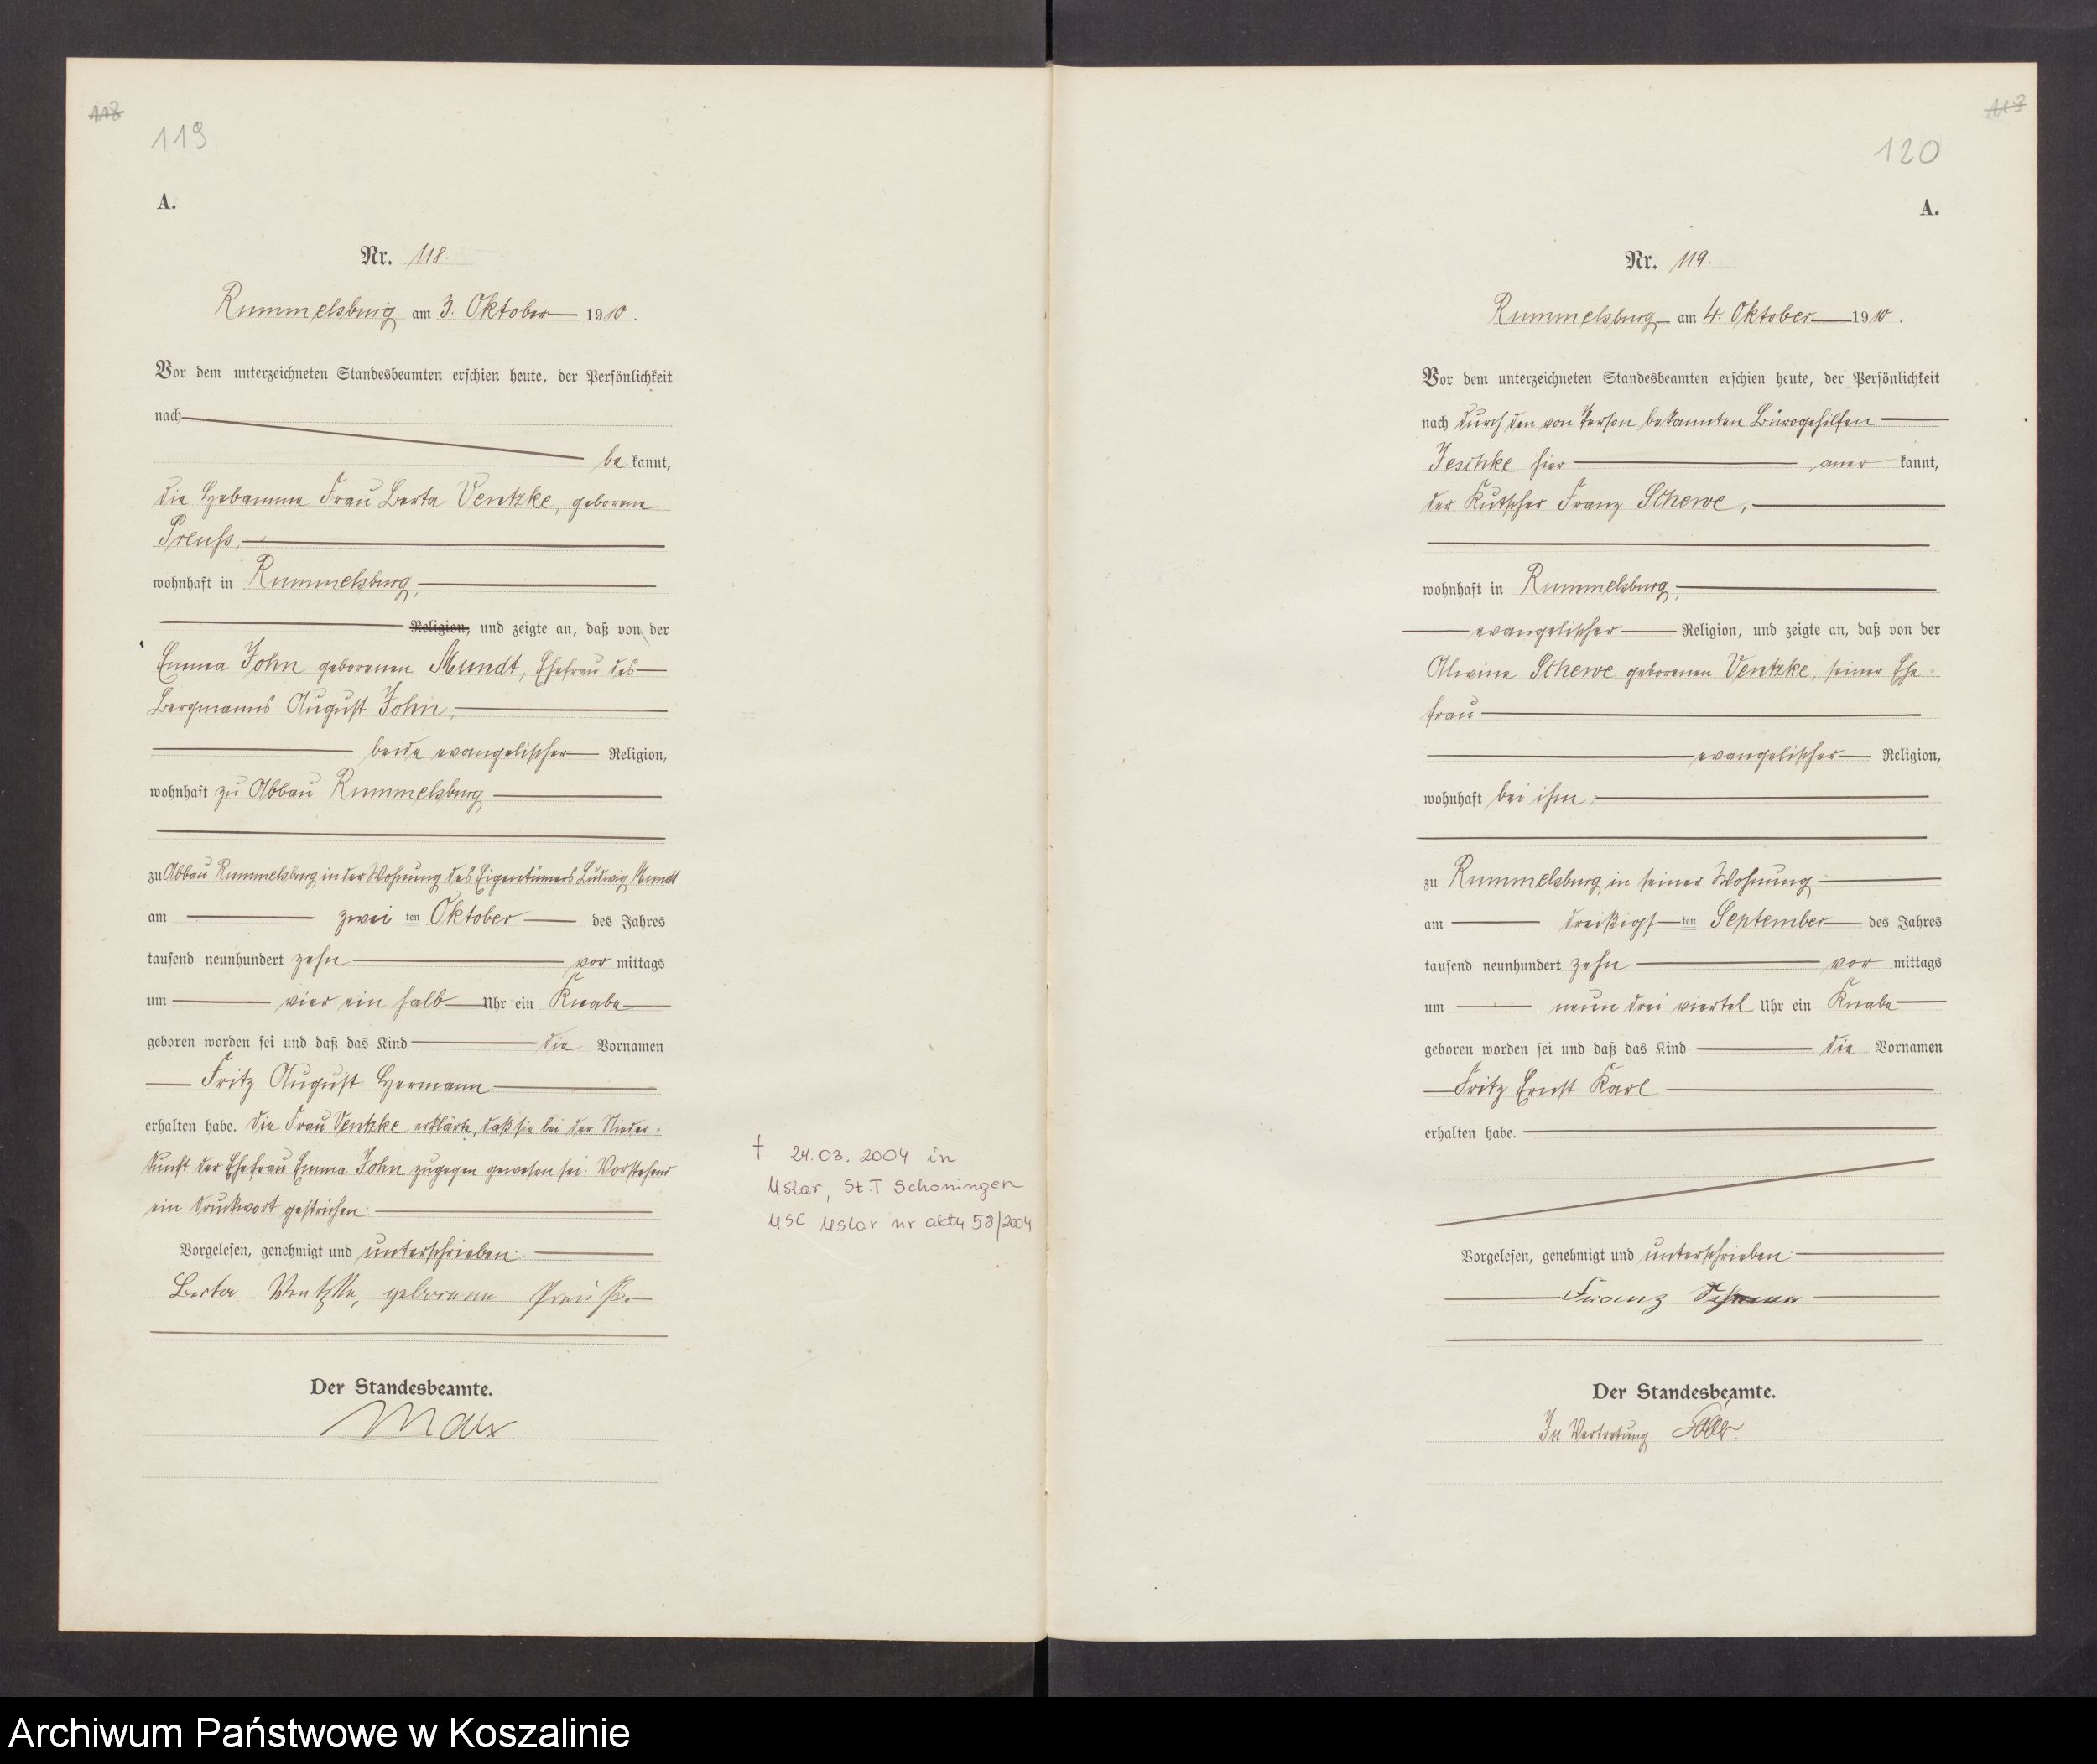 118
119
A.
Nr. 118.
Rummelsburg am 3. Oktober 1910.
Vor dem unterzeichneten Standesbeamten erschien heute, der Persönlichkeit
nach
be kannt,
die Hebamme Frau Berta Ventzke, geborene
Preuß,
wohnhaft in Rummelsburg,
Religion, und zeigte an, daß von der
Emma John geborenen Mundt, Ehefrau des
Bergmanns August John,
beide evangelischer Religion,
wohnhaft zu Abbau Rummelsburg
zu Abbau Rummelsburg in der Wohnung des Eigentümers Ludwig Mundt
am zwei ten Oktober des Jahres
tausend neunhundert zehn vor mittags
um vier ein halb Uhr ein Knabe
geboren worden sei und daß das Kind die Vornamen
Fritz August Hermann
erhalten habe. Die Frau Ventzke erklärte, daß sie bei der Nieder-
kunft der Ehefrau Emma John zugegen gewesen sei. Vorstehend
ein Druckwort gestrichen.
Vorgelesen, genehmigt und unterschrieben.
Berta Ventzke, geborene Preuß.
Der Standesbeamte.
† 24.03.2004 in
Uslar, St.T Schoningen
USC Uslar nr aktu 58/2004
120
A.
Nr. 119.
Rummelsburg am 4. Oktober 1910.
Vor dem unterzeichneten Standesbeamten erschien heute, der Persönlichkeit
nach durch den von Person bekannten Bürogehilfen
Jeschke hier aner kannt,
der Kutscher Franz Schewe,
wohnhaft in Rummelsburg,
evangelischer Religion, und zeigte an, daß von der
Alwine Schewe geborenen Ventzke, seiner Ehe-
frau
evangelischer Religion,
wohnhaft bei ihm.
zu Rummelsburg in seiner Wohnung
am dreißigs ten September des Jahres
tausend neunhundert zehn vor mittags
um neun drei viertel Uhr ein Knabe
geboren worden sei und daß das Kind die Vornamen
Fritz Ernst Karl
erhalten habe.
Vorgelesen, genehmigt und unterschrieben.
Franz
Der Standesbeamte.
In Vertretung
Archiwum Państwowe w Koszalinie